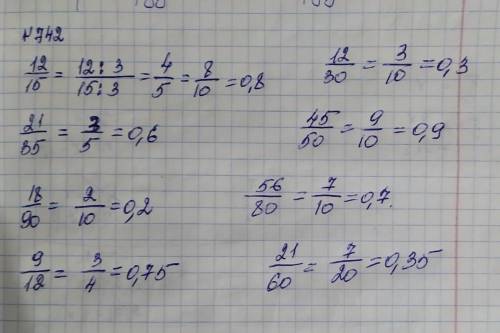 №742
12/15 = 12:3/15:3 = 4/5 = 8/10 = 0,8
12/30 = 3/10 = 0,3
21/35 = 3/5 = 0,6
45/50 = 9/10 = 0,9
18/90 = 2/10 = 0,2
56/80 = 7/10 = 0,7.
9/12 = 3/4 = 0,75
21/60 = 7/20 = 0,35